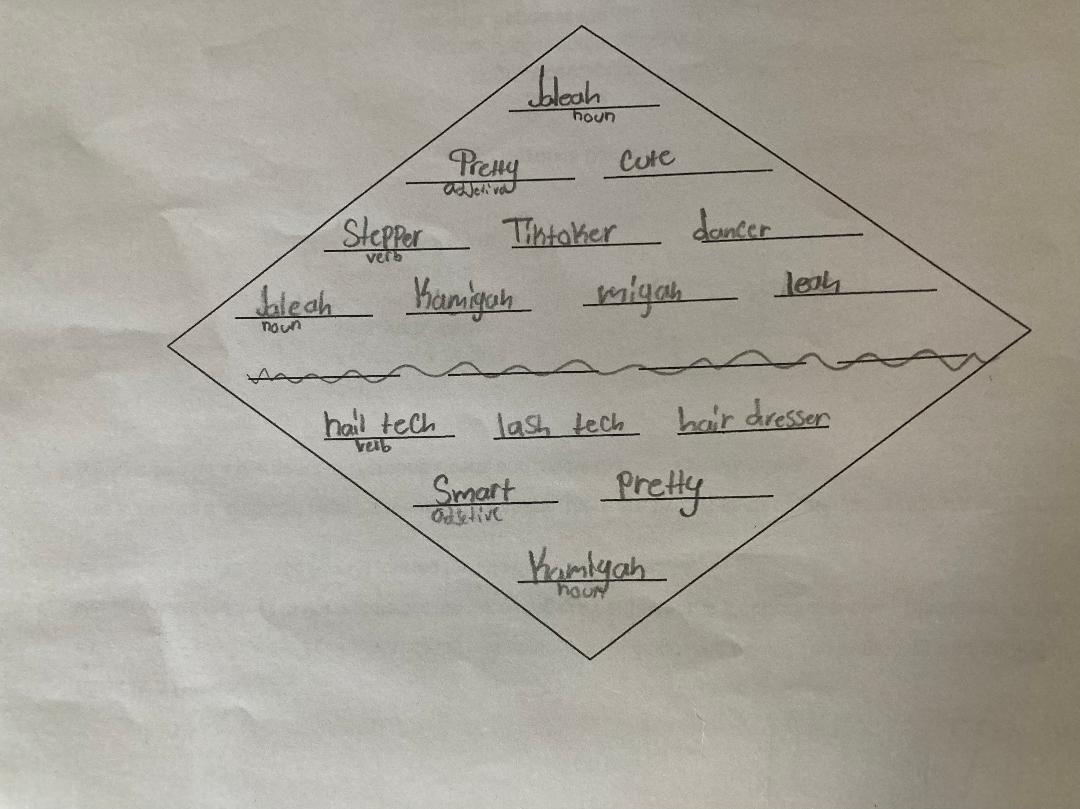 Jaleah
noun
Pretty cute
adjetive
Stepper Tiktoker dancer
verb
Jaleah Kamiyah miyah leah
noun
hail tech lash tech hair dresser
verb
Smart Pretty
adjetive
Kamiyah
noun